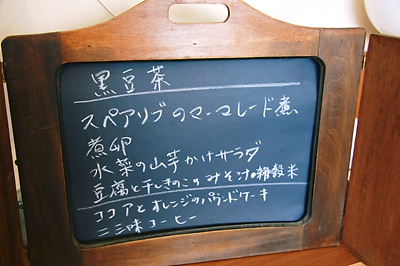 黒豆茶
スペアリブのマーマレード煮
煮卵
水菜の山芋かけサラダ
豆腐と干しきのこのみそ汁・雑穀米
ココアとオレンジのパウンドケーキ
二三味コーヒー